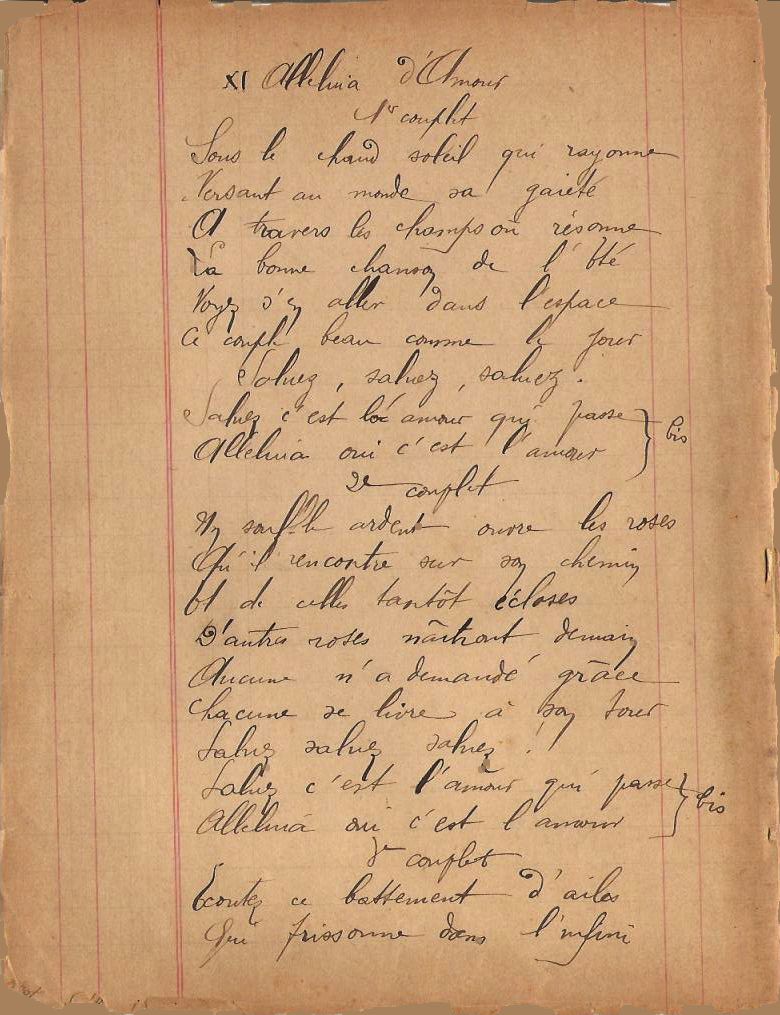 XI Alleluia d'Amour
1er couplet
Sous le chaud soleil qui rayonne
Versant au monde sa gaieté
A travers les champs où résonne
La bonne chanson de l'été
Voyez s'en aller dans l'espace
Ce couple beau comme le jour
Saluez, saluez, saluez.
Saluez c'est l'amour qui passe } bis
Alleluia oui c'est l'amour
2e couplet
Un souffle ardent ouvre les roses
Qu'il rencontre sur son chemin
Et de celles tantôt écloses
D'autres roses naîtront demain
Aucune n'a demandé grâce
Chacune se livre à son tour
Saluez saluez saluez !
Saluez c'est l'amour qui passe } bis
Alleluia oui c'est l'amour
3e couplet
Ecoutez ce battement d'ailes
Qui frissonne dans l'infini